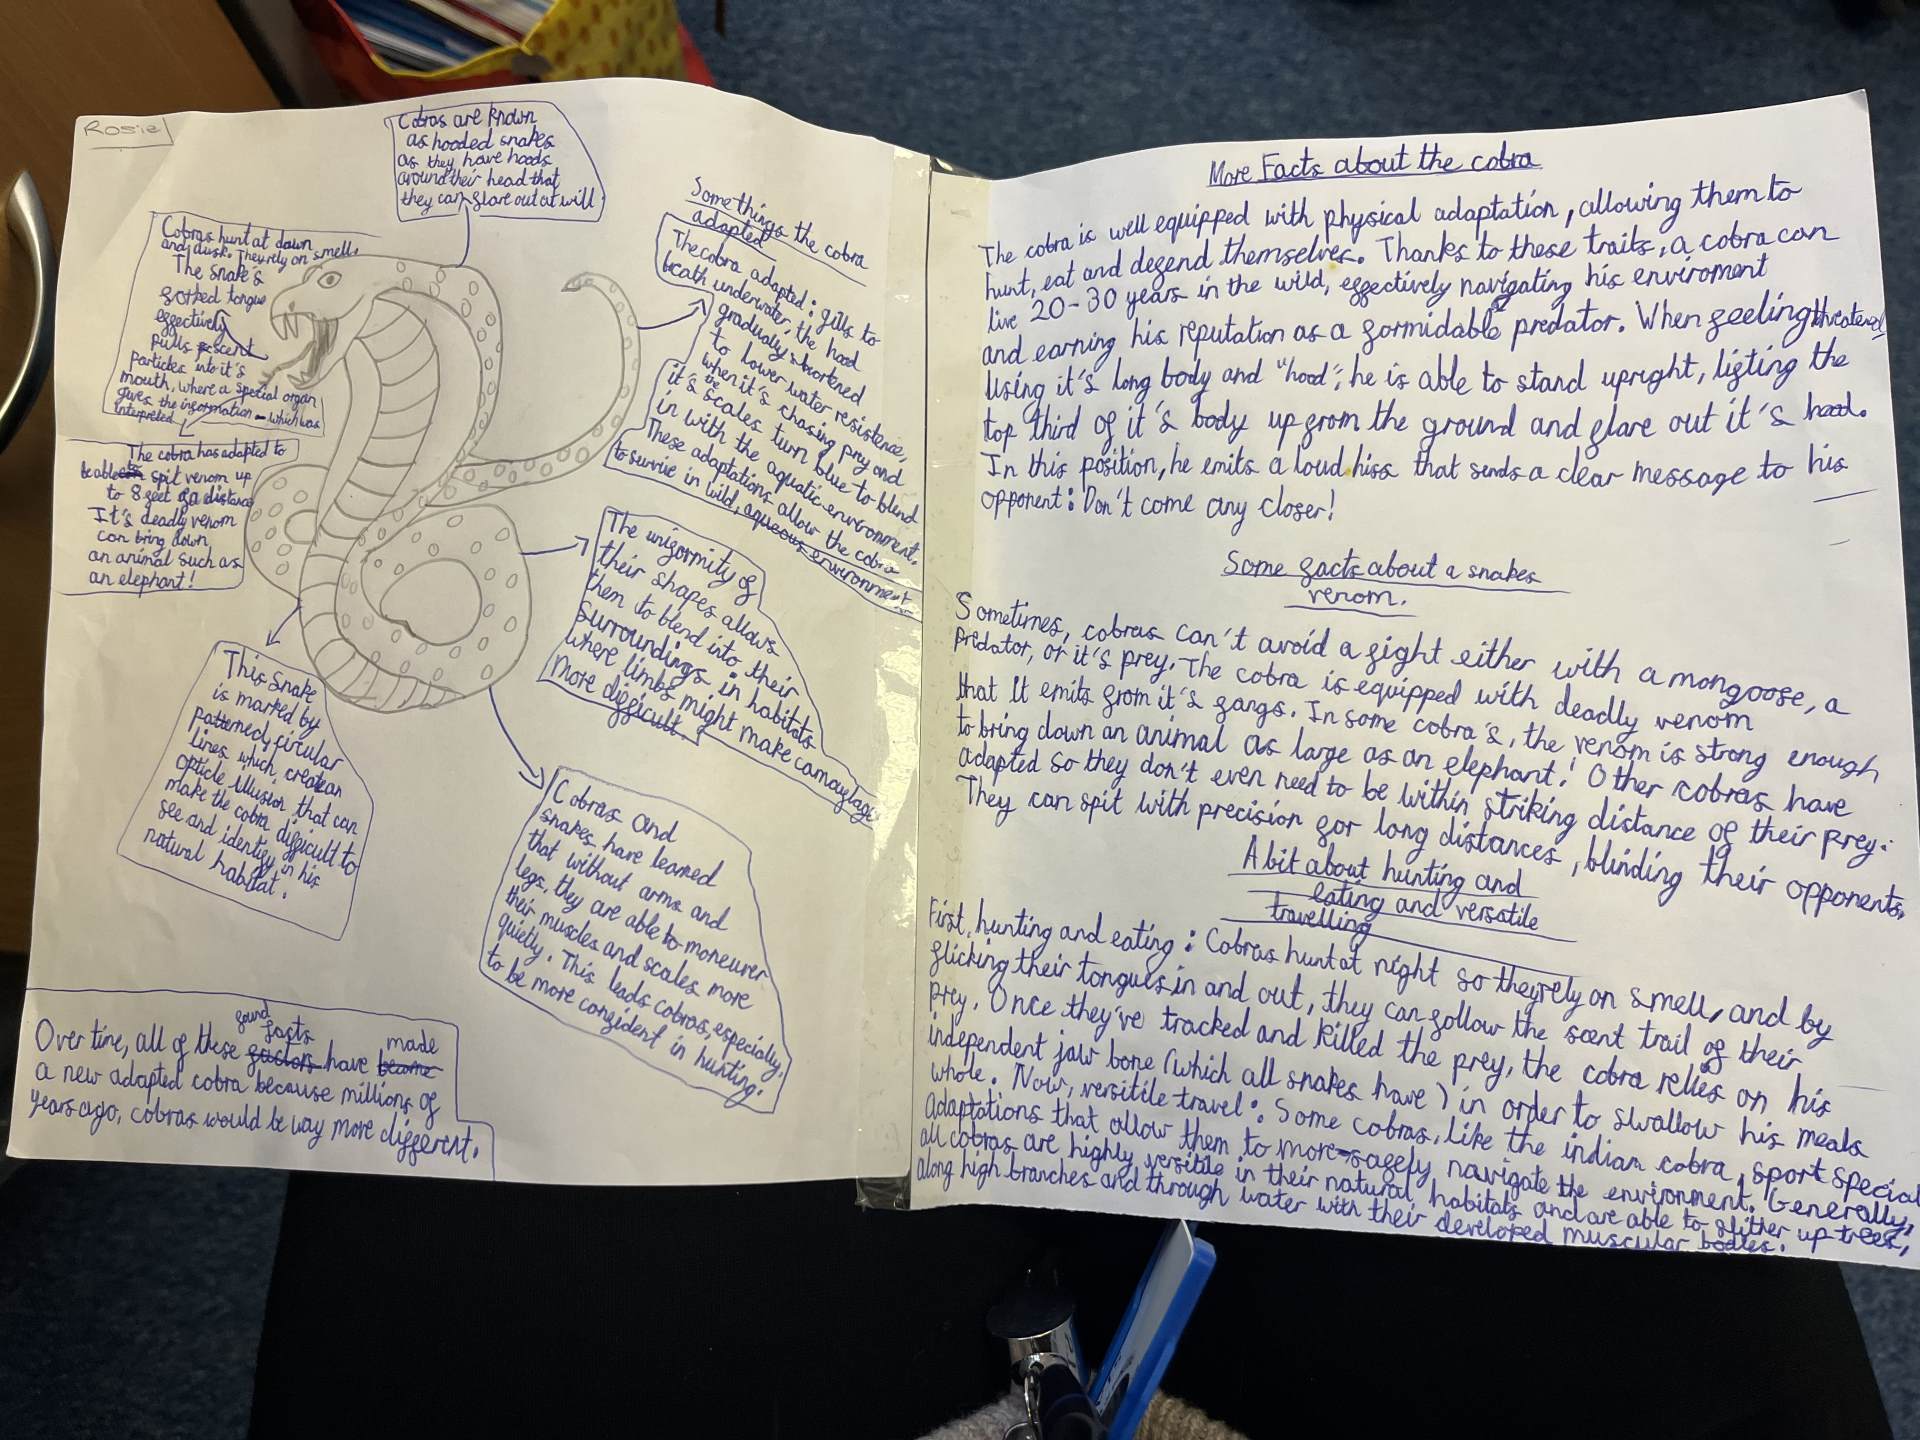 Rosie
Cobras are known
as hooded snakes
as they have hoods
around their head that
they can flare out at will.
Cobras hunt at dawn
and dusk. They rely on smell.
The snake's
forked tongue
effectively
pulls scent
particles into it's
mouth, where a special organ
gives the information - which was
interpreted
The cobra has adapted to
be able to spit venom up
to 8 feet of a distance
It's deadly venom
can bring down
an animal such as
an elephant!
This snake
is marked by
patterned, circular
lines which create an
opticle illusion that can
make the cobra difficult to
see and identify in his
natural habitat.
Some things the cobra
adapted
The cobra adapted: gills to
breath underwater, the hood
gradually shortened
to lower water resistence,
when it's chasing prey and
it's the scales turn blue to blend
in with the aquatic environment.
These adaptations allow the cobra
to survive in wild, aqueous environment
The uniformity of
their shapes allows
them to blend into their
surroundings in habitats
where limbs might make camouflage
more difficult.
Cobras and
snakes have learned
that without arms and
legs, they are able to moneuver
their muscles and scales more
quietly. This leads cobras, especially,
to be more confident in hunting.
found
facts made
Over time, all of these factors have became
a new adapted cobra because millions of
years ago, cobras would be way more different.
More Facts about the cobra
The cobra is well equipped with physical adaptation, allowing them to
hunt, eat and defend themselves. Thanks to these traits, a cobra can
live 20-30 years in the wild, effectively navigating his enviroment
and earning his reputation as a formidable predator. When feeling threatened
using it's long body and "hood", he is able to stand upright, lifting the
top third of it's body up from the ground and flare out it's hood.
In this position, he emits a loud hiss that sends a clear message to his
opponent: Don't come any closer!
Some facts about a snakes
venom.
Sometimes, cobras can't avoid a fight either with a mongoose, a
predator, or it's prey. The cobra is equipped with deadly venom
that it emits from it's fangs. In some cobra's, the venom is strong enough
to bring down an animal as large as an elephant! Other cobras have
adapted so they don't even need to be within striking distance of their prey.
They can spit with precision for long distances, blinding their opponents.
A bit about hunting and
eating and versatile
travelling
First, hunting and eating: Cobras hunt at night so they rely on smell, and by
flicking their tongues in and out, they can follow the scent trail of their
prey. Once they've tracked and killed the prey, the cobra relies on his
independent jaw bone (which all snakes have) in order to swallow his meals
whole. Now, versitile travel: Some cobras, like the indian cobra, sport special
adaptations that allow them to more safely navigate the environment. Generally,
all cobras are highly versitile in their natural habitats and are able to slither up trees,
along high branches and through water with their developed muscular bodies.